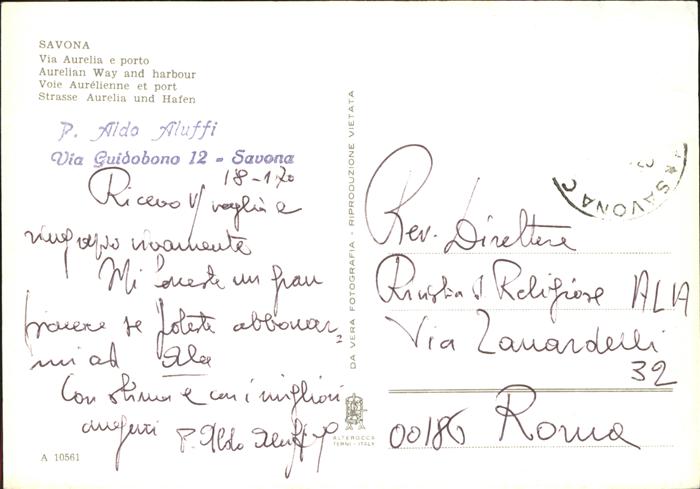 SAVONA
Via Aurelia e porto
Aurelian Way and harbour
Voie Aurélienne et port
Strasse Aurelia und Hafen
P. Aldo Aluffi
Via Guidobono 12 - Savona
18-1-70
Ricevo V/ vaglia e
ringrazio vivamente
Mi fareste un gran
piacere se poteste abbonar
mi ad Ala
Con stima e con i migliori
auguri P. Aldo Aluffi
A 10561
DA VERA FOTOGRAFIA - RIPRODUZIONE VIETATA
ALTEROCCA
TERNI - ITALY
SAVONA C
Rev. Direttore
Religiose ALA
Via Zanardelli
32
00186 Roma